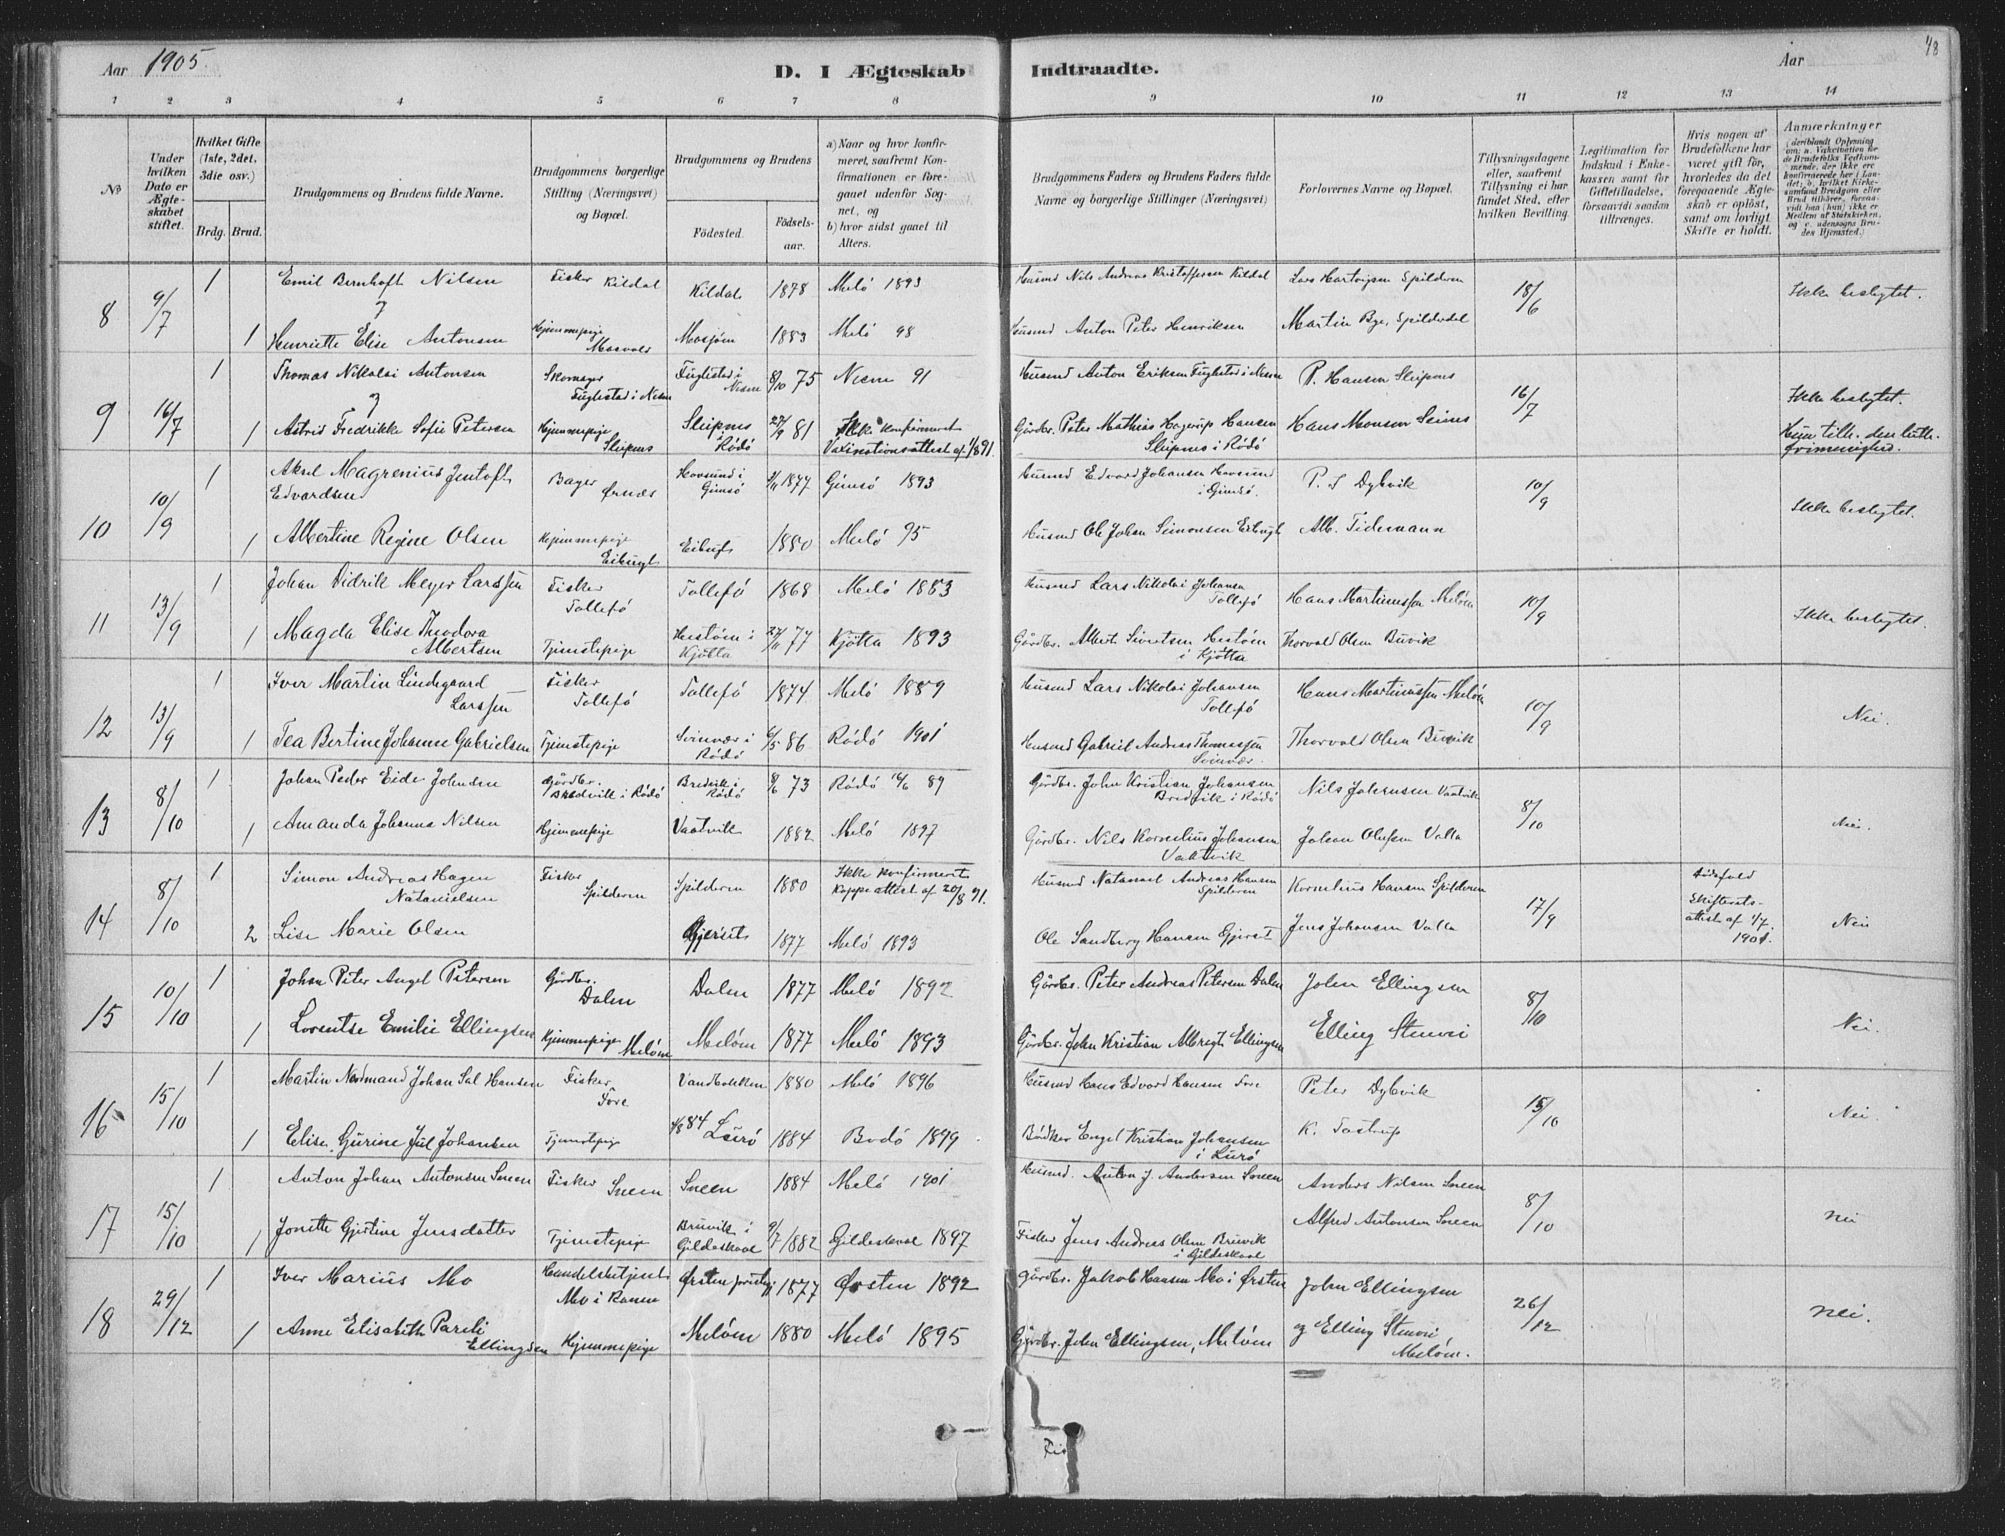 Aar 1905.
D. I Ægteskab Indtraadte.
Aar
48
1 2 3 4 5 6 7 8 9 10 11 12 13 14
No
Under hvilken Dato er Ægteskabet stiftet.
Hvilket Gifte (1ste, 2det, 3die osv.)
Brdg. Brud.
Brudgommens og Brudens fulde Navne.
Brudgommens borgerlige Stilling (Næringsvei) og Bopæl.
Brudgommens og Brudens
Fødested.
Fødselsaar.
a) Naar og hvor konfirmeret, saafremt Konfirmationen er foregaaet udenfor Sognet, og
b) hvor sidst gaaet til Alters.
Brudgommens Faders og Brudens Faders fulde Navne og borgerlige Stillinger (Næringsvei)
Forlovernes Navne og Bopæl.
Tillysningsdagene eller, saafremt Tillysning ei har fundet Sted, efter hvilken Bevilling.
Legitimation for Indskud i Enkekassen samt for Giftetilladelse, forsaavidt saadan tiltrænges.
Hvis nogen af Brudefolkene har været gift før, hvorledes da det foregaaende Ægteskab er opløst, samt om lovligt Skifte er holdt.
Anmærkninger
8 9/7 1 Emil Bernhoft Nilsen Fisker Kildal Kildal 1878 Melö 1893 Husmd Nils Andreas Kristoffersen Kildal Lars Hartvigsen Spilderen 18/6 Ikke beslegtet.
og
1 Henriette Elise Antonsen Hjemmepige Mosvold Mosjøen 1883 Melö 98 Husmd Anton Peter Henriksen Martin Bye, Spilderdal
9 16/7 1 Thomas Nikolai Antonsen Skomager Fuglestad i Nesne Fuglestad i Nesne 8/10 75 Nesne 91 Husmd Anton Eriksen Fuglstad i Nesne P. Hansen Sleipnes 16/7 Ikke beslegtet.
og
1 Astrid Fredrikke Sofie Petersen Hjemmepige Sleipnes Sleipnes i Rödö 27/9 81 Ikke konfirmeret Vaxinationsattest af 1891. Gårdbr. Peter Mathias Hagerup Hansen Sleipnes i Rödö Hans Monsen Seines Hun tilh. den luth. frimenighed.
10 10/9 1 Aksel Magrenius Jentoft Edvardsen Bager Ørnes Hovsund i Gimsö 4/11 1877 Gimsö 1893 Husmd Edvard Johansen Hovsund i Gimsö. P. S Dybvik 10/9 Ikke beslegtet.
1 Albertine Regine Olsen Hjemmepige Eibugt Eibugt 1880 Melö 95 Husmd Ole Johan Simonsen Eibugt Alb. Tidemann
11 13/9 1 Johan Didrik Meyer Larssen Fisker Tollefö Tollefö 1868 Melö 1883 Husmd Lars Nikolai Johansen Tollefö Hans Martinussen Melöen 10/9 Ikke beslegtet.
1 Magda Elise Theodora Albertsen Tjenstepige Hestøen i Vjötta 27/11 77 Kjötta 1893 Gårdbr. Albert Simetsen Hestøen i Kjötta Thorvald Olsen Buvik
12 13/9 1 Iver Martin Lindegaard Larssen Fisker Tollefö Tollefö 1874 Melö 1889 Husmd Lars Nikolai Johansen Tollefö Hans Martinussen Melöen 10/9 Nei.
1 Tea Bertine Johanne Gabrielsen Tjenstepige Svinvær i Rödö 6/5 86 Rödö 1901 Husmd Gabriel Andreas Thomassen Svinvær. Thorvald Olsen Buvik
13 8/10 1 Johan Peder Eide Johnsen Gårdbr. Bredvik i Rödö Bredvik i Rödö 8/6 73 Rödö 16/6 89 Gårdbr. John Kristian Johansen Bredvik i Rödö Nils Johansen Vaatvik 8/10 Nei.
1 Amanda Johanna Nilsen Hjemmepige Vaatvik 1882 Melö 1897 Gårdbr. Nils Kornelius Johansen Vaatvik Johan Olufsen Valla
14 8/10 1 Simon Andreas Hagen Natanielsen Fisker Spilderen Spilderen 1880 Ikke konfirmeret Koppeattest af 20/8 91. Husmd Natanael Andreas Hansen Spilderen Kornelius Hansen Spilderen 17/9 Dødsfald Skifterets-attest af 1/7 1901. Nei
2 Lise Marie Olsen Gjerset 1877 Melö 1893 Ole Sandberg Hansen Gjerset Jens Johansen Valla
15 10/10 1 Johan Peter Angel Petersen Gårdbr. Dalen Dalen 1877 Melö 1892 Gårdbr. Peter Andreas Petersen Dalen John Ellingsen 8/10 Nei.
1 Lorentse Emilie Ellingsen Hjemmepige Melöen Melöen 1877 Melö 1893 Gårdbr. John Kristian Albregt Ellingsen Elling Stenvei
16 15/10 1 Martin Nordmand Johan Sal Hansen Fisker Fore Vandbakken 1880 Melö 1896 Husmd Hans Edvard Hansen Fore Peter Dybvik 15/10 Nei.
1 Elise Gurine Jul Johansen Tjenstepige Lurö 1884 Bodö 1899 Bödker Engel Kristian Johansen i Lurö K. Tostrup
17 15/10 1 Anton Johan Antonsen Sneen Fisker Sneen Sneen 1884 Melö 1901 Husmd. Anton J. Andersen Sneen Anders Nilsen Sneen 8/10 Nei
1 Jonette Gjertine Jensdatter Tjenstepige Bruvik i Gildeskaal 9/7 1882 Gildeskaal 1897 Fisker Jens Andreas Olsen Bruvik i Gildeskaal Alfred Antonsen Sneen
18 29/12 1 Iver Marius Mo Handelsbetjent Mo i Ranen Ørsten 1877 Ørsten 1892 Gårdbr. Jakob Hansen Mo i Ørsten John Ellingsen 26/12 Nei.
1 Anne Elisabeth Pareli Ellingsen Hjemmepige Melöen 1880 Melö 1895 Gårdbr. John Ellingsen, Melöen og Elling Stenvei Melöen.